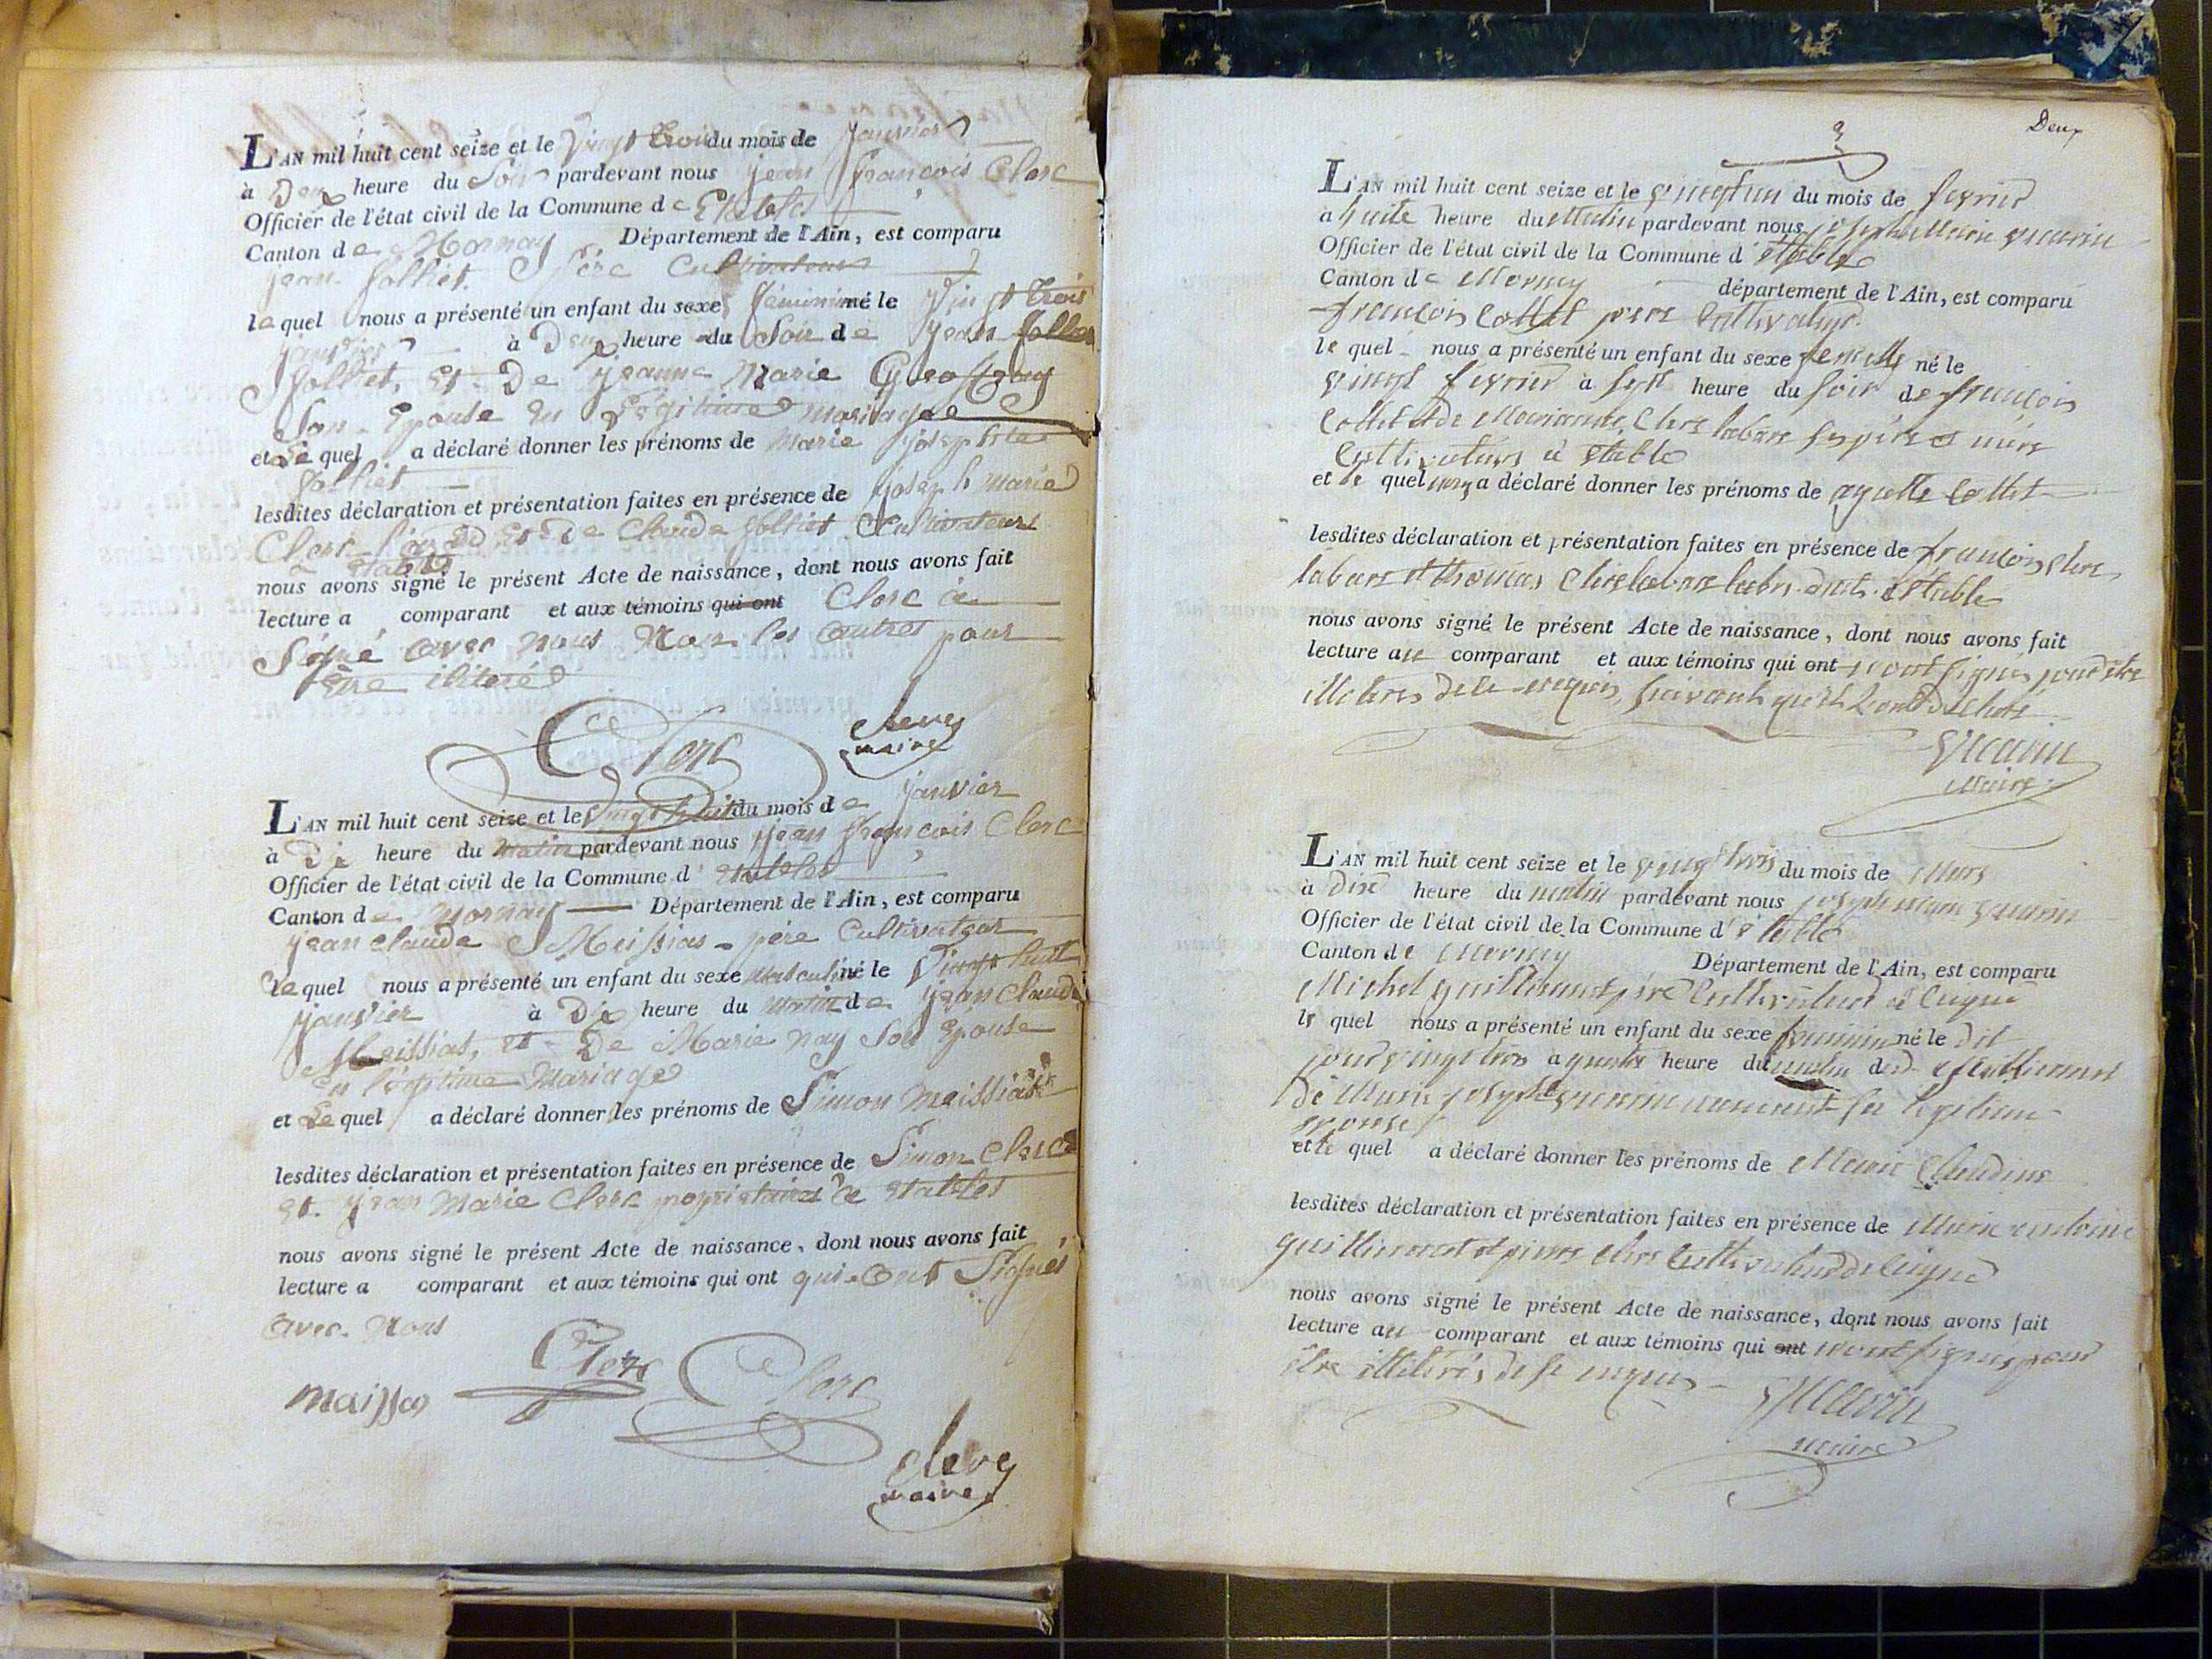 L'AN mil huit cent seize et le vingt trois du mois de janvier
à Deux heure du Soir pardevant nous jean françois Clerc
Officier de l'état civil de la Commune de Etables
Canton de Mornay Département de l'Ain, est comparu
jean folliet père Cultivateur
le quel nous a présenté un enfant du sexe féminin né le vingt trois
janvier à Deux heure du Soir de jean
folliet, et De jeanne Marie
Son Epouse en légitime mariage
et Le quel a déclaré donner les prénoms de Marie josephte
folliet
lesdites déclaration et présentation faites en présence de joseph marie
Clerc et De Claude folliet Cultivateurs
nous avons signé le présent Acte de naissance, dont nous avons fait
lecture a comparant et aux témoins qui ont Clerc a
Signé avec nous Non les autres pour
être iliteré
Clerc
maire
L'AN mil huit cent seize et le vingt huit du mois de janvier
à Dix heure du matin pardevant nous jean françois Clerc
Officier de l'état civil de la Commune d' etables
Canton de Mornay Département de l'Ain, est comparu
jean claude Meissias père Cultivateur
le quel nous a présenté un enfant du sexe masculin né le vingt huit
janvier à Dix heure du matin de jean Claude
Meissias, et De Marie nay Son Epouse
en légitime Mariage
et Le quel a déclaré donner les prénoms de Simon Meissias
lesdites déclaration et présentation faites en présence de Simon Clerc
et jean Marie Clerc propriétaires de etables
nous avons signé le présent Acte de naissance, dont nous avons fait
lecture a comparant et aux témoins qui ont qui ont Signés
avec Nous
Clerc
Clerc
maire
Deux
L'AN mil huit cent seize et le vingt un du mois de fevrier
à huite heure du Matin pardevant nous joseph Marie
Officier de l'état civil de la Commune d' etable
Canton de Mornay département de l'Ain, est comparu
françois Collet pere Cultivateur
le quel nous a présenté un enfant du sexe femelle né le
vingt fevrier à sept heure du soir de françois
Collet et de Marianne Clerc labare ses père et mère
Cultivateurs à etable
et le quel a déclaré donner les prénoms de Collet
lesdites déclaration et présentation faites en présence de françois clerc
labare et thomas clerc labare
nous avons signé le présent Acte de naissance, dont nous avons fait
lecture au comparant et aux témoins qui ont n'ont signé pour être
illiteres de ce requis, suivant qu'ils l'ont declaré
Maire
L'AN mil huit cent seize et le vingt trois du mois de Mars
à dix heure du matin pardevant nous joseph marie
Officier de l'état civil de la Commune d' etable
Canton de Mornay Département de l'Ain, est comparu
Michel guillermet père Cultivateur
le quel nous a présenté un enfant du sexe feminin né le dit
jour vingt trois a quatre heure du matin de guillermet
de Marie josephte sa legitime
epouse
et le quel a déclaré donner les prénoms de Marie Claudine
lesdites déclaration et présentation faites en présence de Marie antoine
guillermet et pierre clerc Cultivateurs
nous avons signé le présent Acte de naissance, dont nous avons fait
lecture au comparant et aux témoins qui ont n'ont signés pour
être illiterés de ce requis
maire